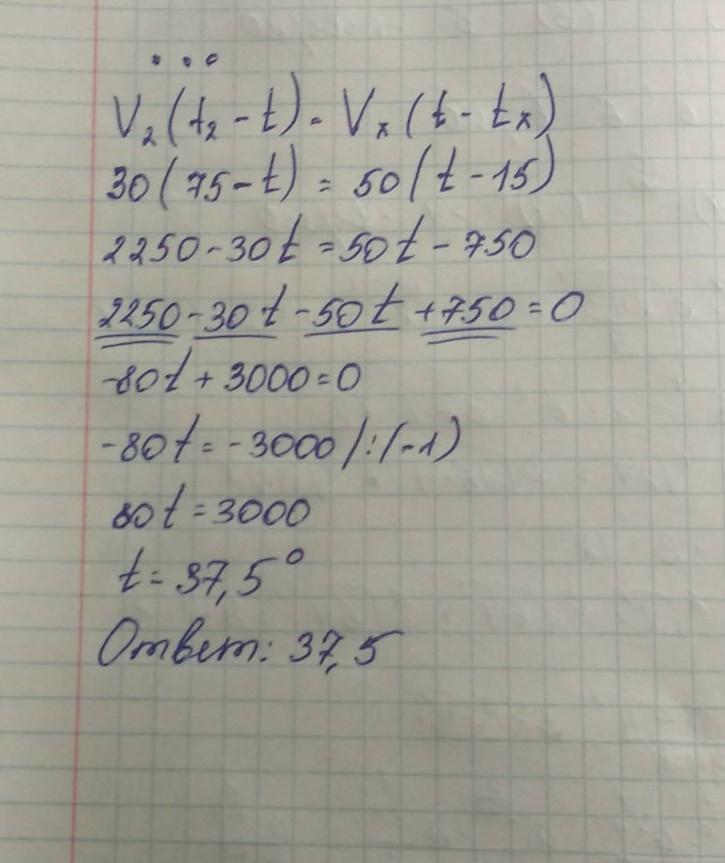 ...
V₂(t₂-t)=Vₓ(t-tₓ)
30(75-t)=50(t-15)
2250-30t=50t-750
2250-30t-50t+750=0
-80t+3000=0
-80t=-3000/:(-1)
80t=3000
t=37,5°
Ответ: 37,5